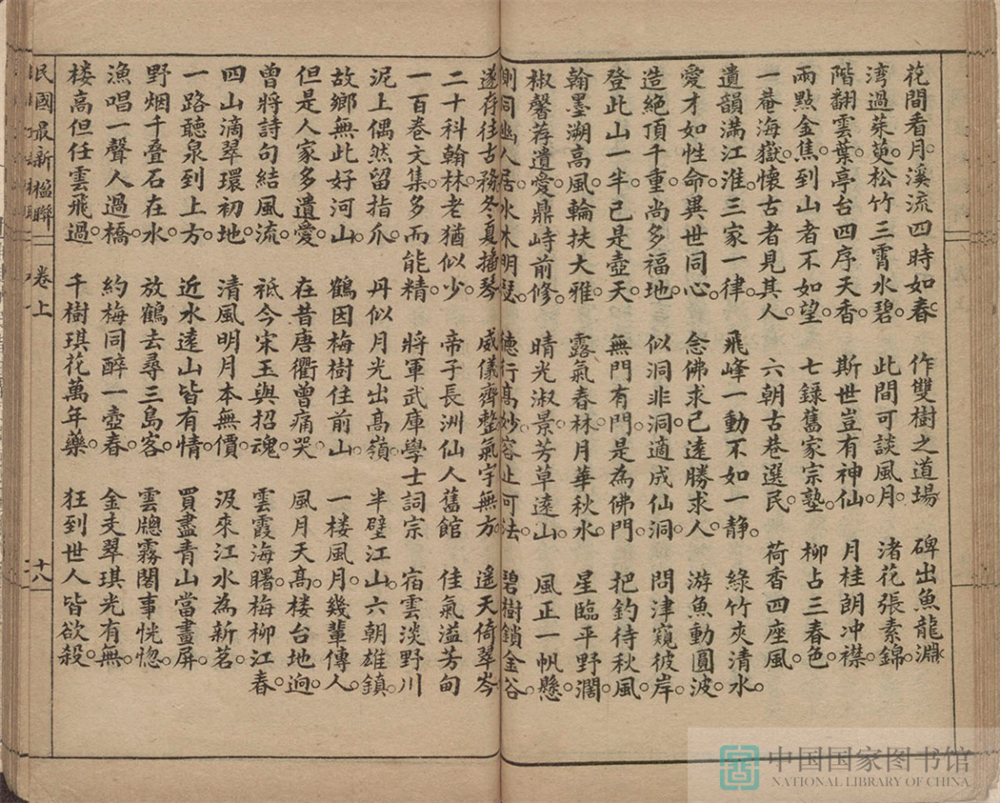 花間看月溪流四時如春。 作雙樹之道場 碑出魚龍淵。
湾過茱萸松竹三霄水碧。 此間可談風月。 渚花張素錦。
階翻雲葉亭台四序天香。 斯世豈有神仙 月桂朗冲襟。
兩點金焦到山者不如望。 七錄舊家宗塾。 柳占三春色。
一菴海嶽懷古者見其人。 六朝古巷選民。 荷香四座風。
遺韻满江淮三家一律。 飛峰一動不如一静。 綠竹夾清水。
愛才如性命異世同心。 念佛求己遠勝求人。 游魚動圓波。
造絕頂千重尚多福地。 似洞非洞適成仙洞。 問津窺彼岸。
登此山一半己是壺天。 無門有門是為佛門。 把釣待秋風。
翰墨溯高風輪扶大雅。 露氣春林月華秋水。 星臨平野濶。
椒馨荐遺愛鼎峙前修。 晴光淑景芳草遠山。 風正一帆懸。
則同幽人居水木明瑟。 德行高妙容止可法。 碧樹鎖金谷。
遂存往古務冬夏播琴。 威儀齊整氣宇無方。 遙天倚翠岑
二十科翰林老猶似少。 帝子長洲仙人舊館 佳氣溢芳甸
一百卷文集多而能精。 將軍武庫學士詞宗 宿雲淡野川
泥上偶然留指爪。 丹似月光出高嶺 半壁江山六朝雄鎮。
故鄉無此好河山。 鶴因梅樹住前山。 一楼風月幾輩傳人。
但是人家多遺愛。 在昔唐衢曾痛哭。 風月天高楼台地迥。
曾將詩句結風流。 祗今宋玉與招魂。 雲霞海曙梅柳江春。
四山滴翠環初地。 清風明月本無價。 汲來江水為新茗。
一路聽泉到上方。 近水遠山皆有情。 買盡青山當畫屏。
野烟千叠石在水。 放鶴去尋三島客。 雲牕霧閣事恍惚。
漁唱一聲人過橋。 約梅同醉一壺春。 金支翠琪光有無。
楼高但任雲飛過。 千樹琪花萬年藥。 狂到世人皆欲殺。
民國最新楹聯 卷上 十八